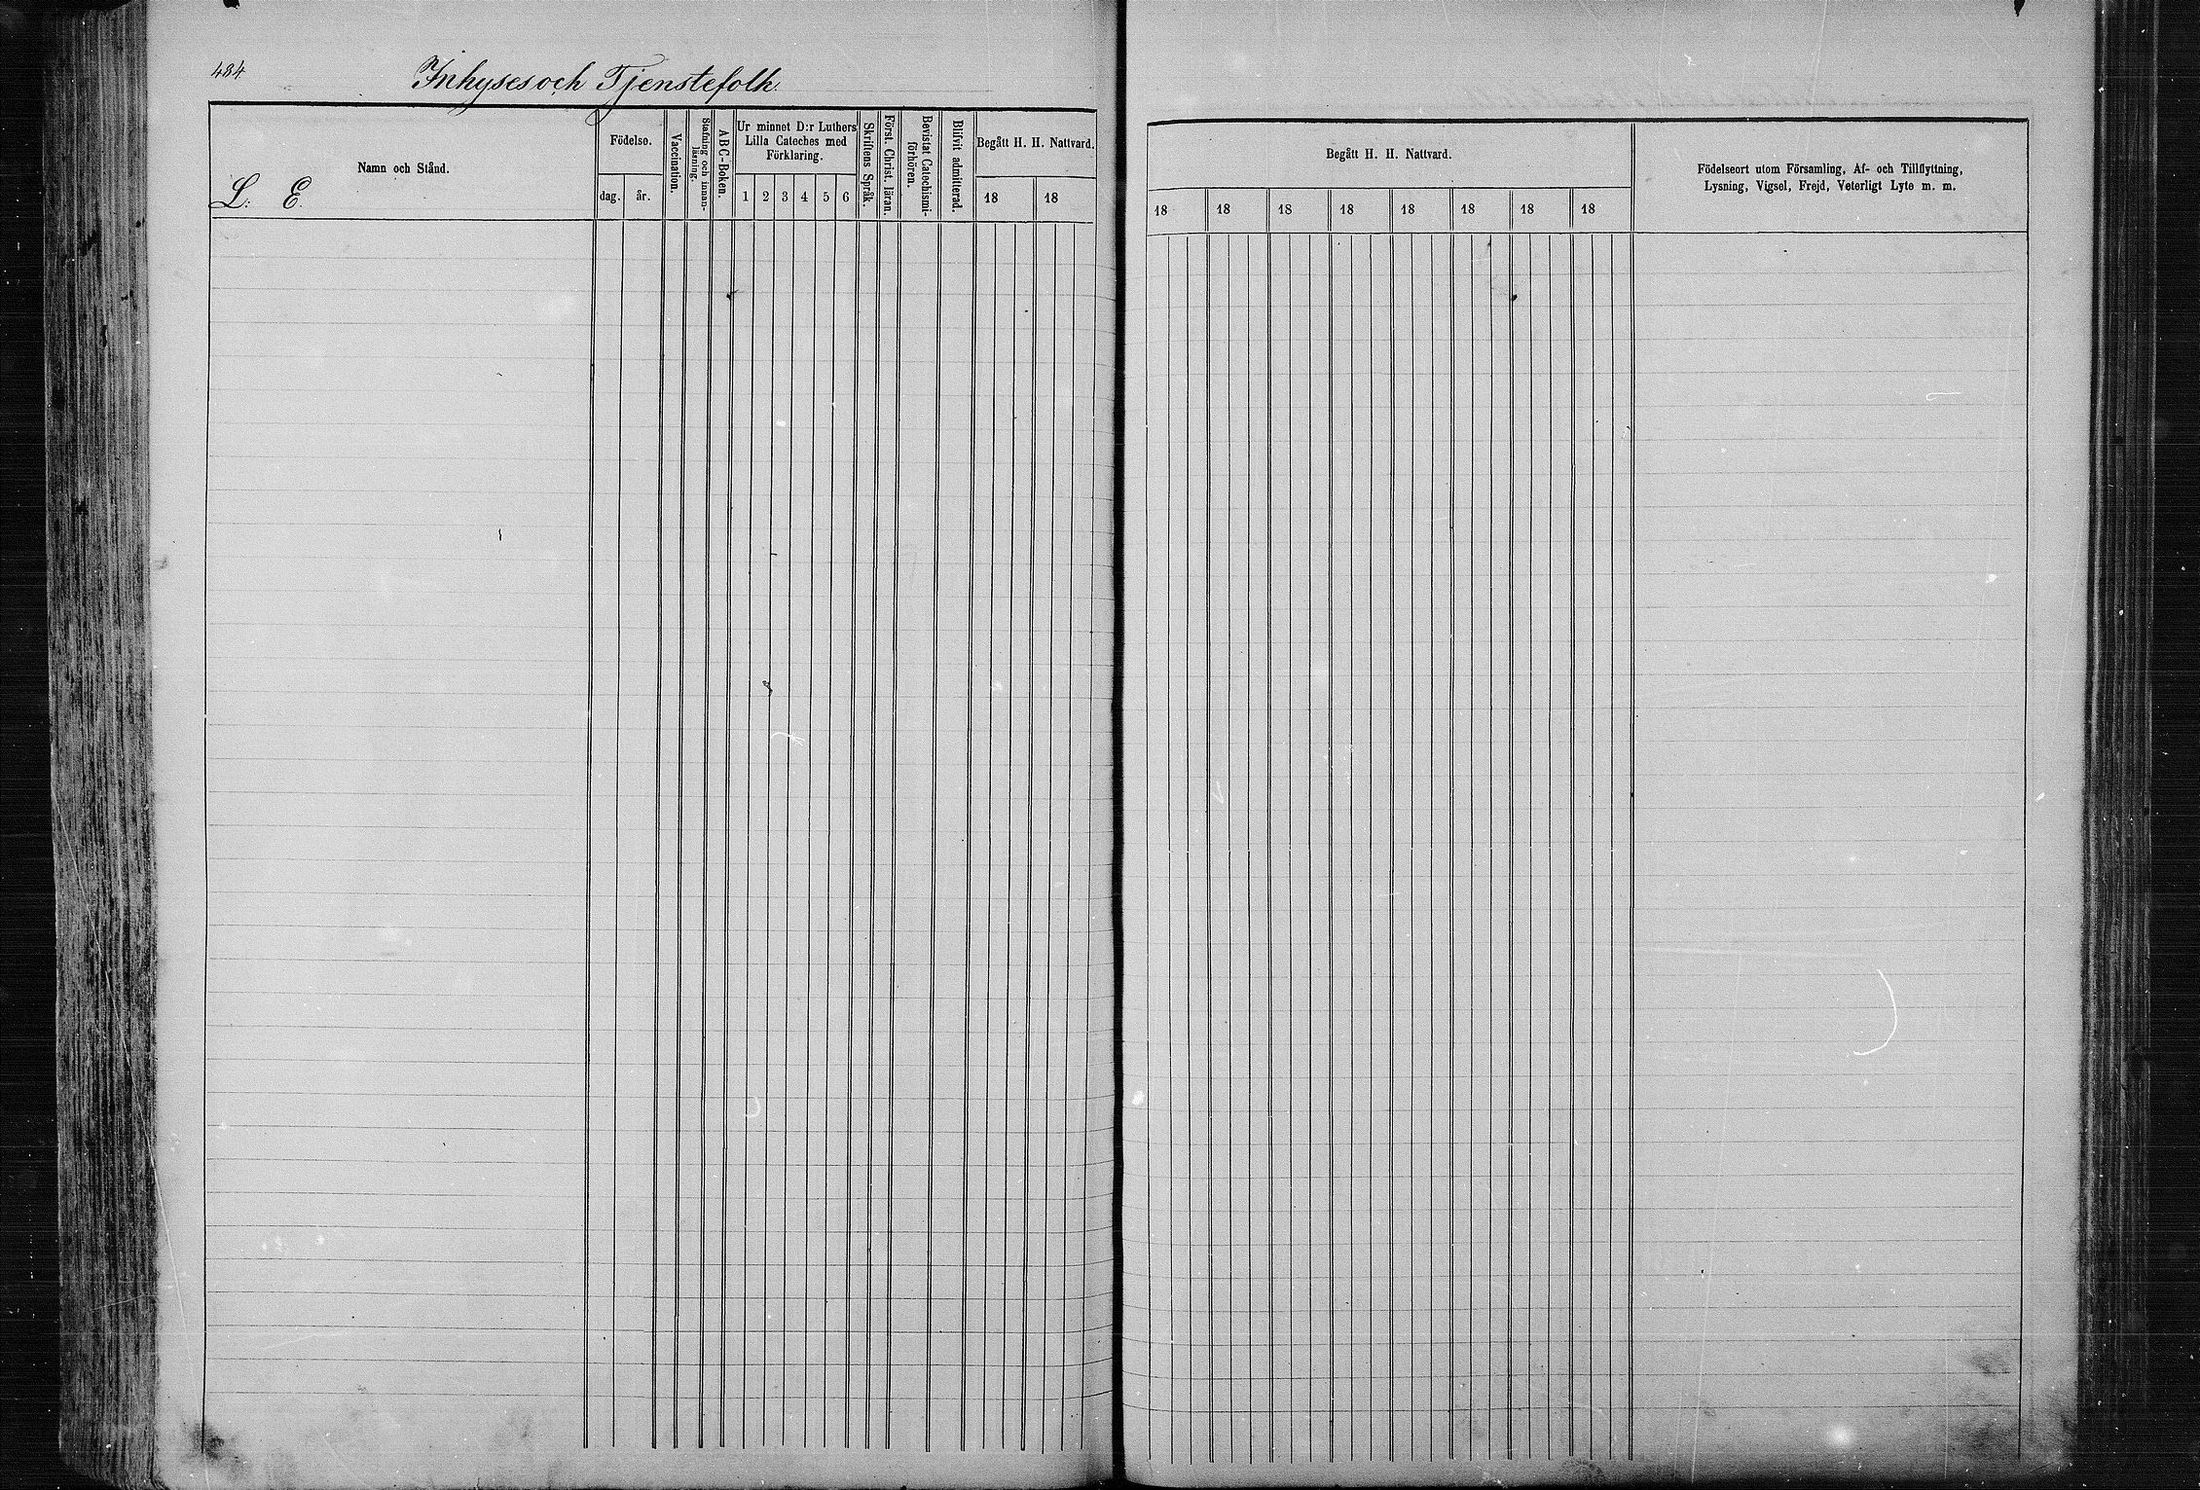 484
Inhyses och Tjenstefolk.
Namn och Stånd.
L: E.
Födelse.
dag. år.
Vaccination.
Stafning och innan-
läsning.
ABC-Boken.
Ur minnet D:r Luthers
Lilla Cateches med
Förklaring.
1 2 3 4 5 6
Skriftens Språk.
Först. Christ. läran.
Bevistat Catechismi-
förhören.
Blifvit admitterad.
Begått H. H. Nattvard.
18 18
Begått H. H. Nattvard.
18 18 18 18 18 18 18 18
Födelseort utom Församling, Af- och Tillflyttning,
Lysning, Vigsel, Frejd, Veterligt Lyte m. m.